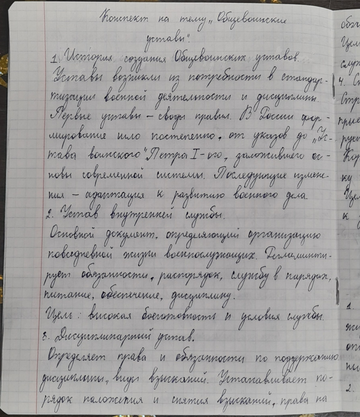 Конспект на тему „Общевоинские
уставы".
1. История создания Общевоинских уставов
Уставы возникли из потребности в стандар-
тизации военной деятельности и дисциплины.
Первые уставы – своды правил. В России фор-
мирование шло постепенно, от указов до „Ус-
тава воинского" Петра I-ого, заложившего ос-
новы современной системы. Последующие измене-
ния – адаптация к развитию военного дела.
2. Устав внутренней службы.
Основной документ, определяющий организацию
повседневной жизни военнослужащих. Регламенти-
рует обязанности, распорядок, службу в нарядах,
питание, обеспечение, дисциплину.
Цель: высокая боеготовность и условия службы
3. Дисциплинарный устав.
Определяет права и обязанности по поддержанию
дисциплины, виды взысканий. Устанавливает по-
рядок наложения и снятия взысканий, права на